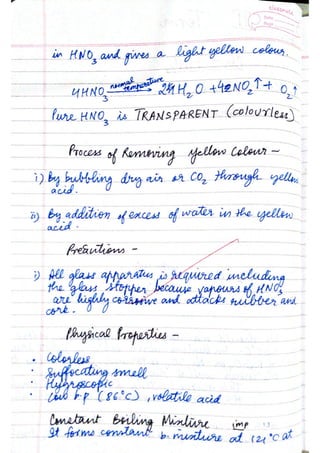 classmate
Date
Page
in HNO₃ and gives a light yellow colour.
4HNO₃ normal temperature 2H₂O + 4NO₂↑ + O₂↑
Pure HNO₃ is TRANSPARENT (colourless)
Process of Removing yellow Colour -
i) By bubbling dry air or CO₂ through yellow
acid.
ii) By addition of excess of water in the yellow
acid.
Precautions -
i) All glass apparatus is required including
the glass stopper because vapours of HNO₃
are highly corrosive and attacks rubber and
cork.
Physical Properties -
• Colorless
• Suffocating smell
• Hygroscopic
• Low b.p. (86°C), volatile acid
Constant Boiling Mixture imp
It forms constant b. mixture at 121°C at